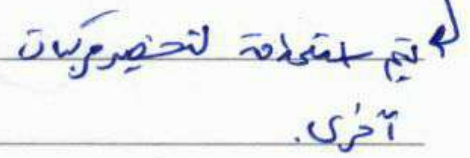 يتم استخدامه لتحضير مركبات
أخرى.